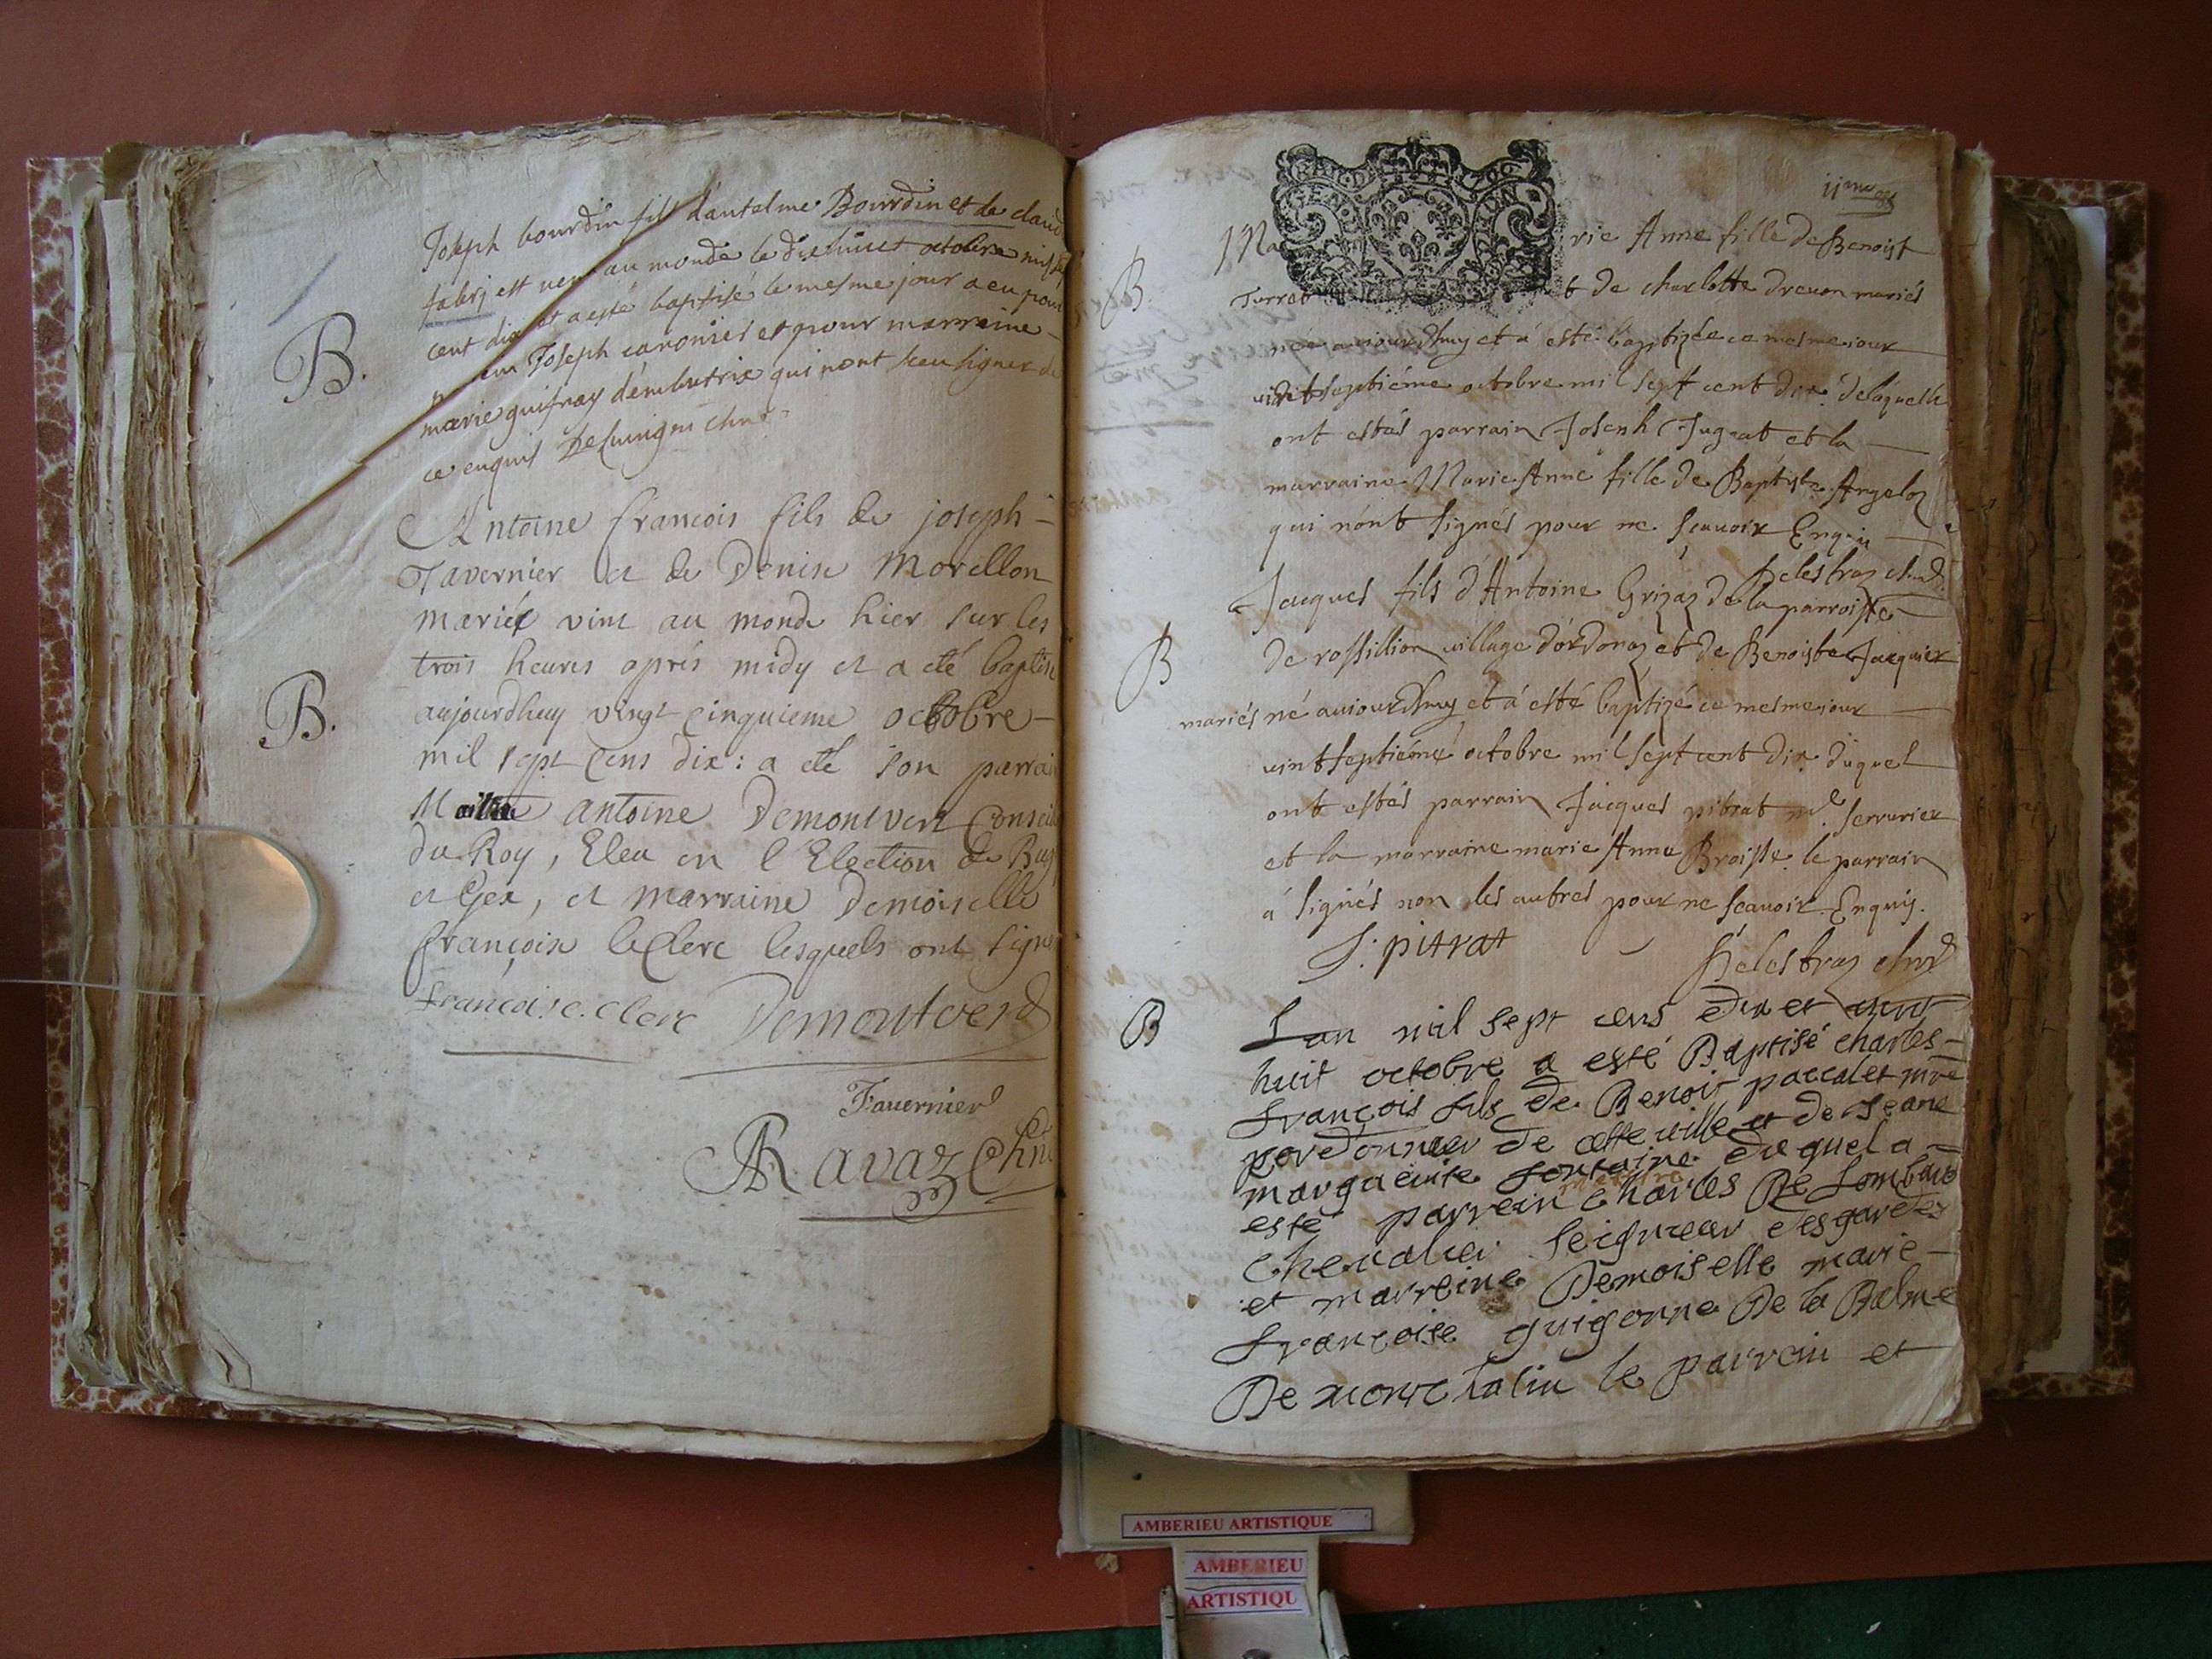 Joseph bourdin fils d'antelme Bourdin et de claud
fabri est venu au monde le dixhuict octobre mil sept
cent dix et a esté baptisé le mesme jour a eu pour
Joseph caronier et pour marreine
marie guifray d'embutrix qui n'ont sceu signer de
ce enquis
B.
Antoine francois fils de joseph
Tavernier et de Denise Morellon
mariéz vint au monde hier sur les
trois heures aprés midy et a eté baptisé
B.
aujourdhuy vingt cinquieme octobre
mil sept cens dix : a eté son parrain
Maitre antoine Demontvert Conseil
du Roy, Eleu en l'Election de Bug
et Gex, et marraine Demoiselle
françoise leClerc lesquels ont signé
françoise clerc Demontverd
Tavernier
Ravaz Chne
GEN
B
Ma rie Anne fille de Benoist
Turret et de charlotte drevon mariés
née aujourdhuy et á esté baptizée ce mesme jour
vint septiéme octobre mil sept cent dix de laquelle
ont estés parrain Joseph Jugeat et la
marraine Marie Anne fille de Baptiste Angeloz
qui n'ont signés pour ne scavoir Enquis
Delestraz chne
B
Jacques fils d'Antoine Grizaz de la parroisse
de rossillion village d'ordonaz et de Benoiste Jacquier
mariés né aujourdhuy et á esté baptizé ce mesme jour
vint septiéme octobre mil sept cent dix duquel
ont estés parrain Jacques pitrat me serrurier
et la marraine marie Anne Broisse le parrain
á signés non les autres pour ne scavoir Enquis.
J. pitrat
Delestraz chne
B
Lan mil sept cens dix et vint
huit octobre a esté Baptisé charles
François fils de Benoit paccalet mre
cordonnier de cette ville et de Jeane
marguerite fontaine duquel a
esté parrein Charles De Lombard
Chevalier Seigneur des gardes
et marreine Demoiselle marie
Françoise guigonne De la Balme
De montchalin le parrein et
AMBERIEU ARTISTIQUE
AMBERIEU
ARTISTIQU